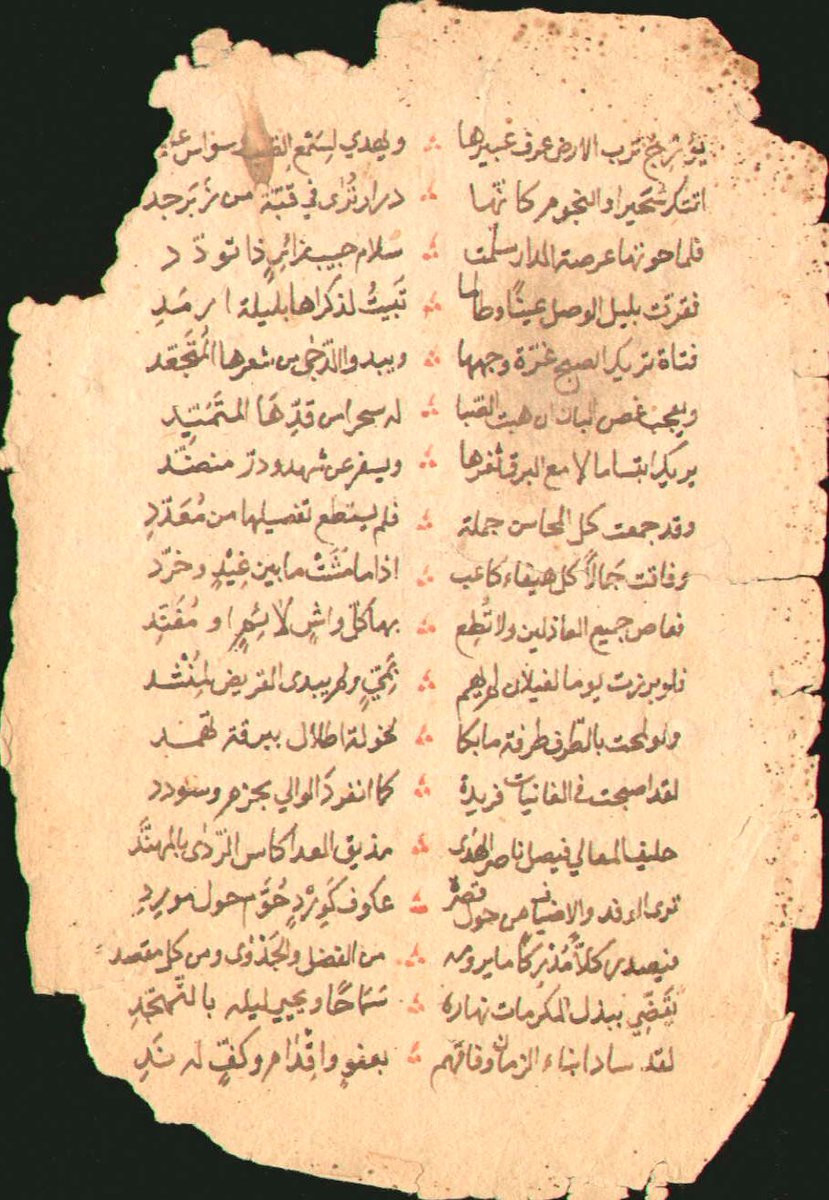 يؤرّج ترب الارض عرف عبيرها ∴ ويهدي لسمع
اتتك سُحَيرا والنجوم كانّها ∴ درار تُرٰى في قبّة من زبرجد
فلما حوتها عرصة الدار سلّمت ∴ سلام حبيب زائرٍ ذا تودّد
فقرّت بليل الوصل عينًا وطالما ∴ تَبَيتُ لذكراها بليلة ارمَدِ
فتاة تريك الصبح غرّة وجهها ∴ ويبدو الدّجى من شعرها المُتَجَعّد
ويعجب غصن البان ان هبت الصّبا ∴ له سحرا من قدّها المتميّد
يريك ابتساما لامع البرق ثغرها ∴ ويسفر عن شهد ودرّ منضّد
وقد جمعت كل المحاسن جملة ∴ فلم يستطع تفصيلها من مُعَدّدِ
وفاقت جَمالاً كل هيفاء كاعب ∴ اذا ما مَشَتْ ما بين غِيْدٍ وخرّد
فعاص جميع العاذلين ولا تُطِع ∴ بها كلّ واشٍ لائِمٍ او مُفَنّدِ
فلو برزت يوما لغيلان لم يهم ∴ بميٍّ ولم يبدى القريض لمُنْشد
ولو لمحت بالطرف طرفة ما بكا ∴ لخولة اطلال ببرقة ثهمد
لقد اصبحت في الغانيات فريدة ∴ كما انفرد الوالي بحزم وسودد
حليف المعالي فيصل ناصر الهُدى ∴ مذيق العدا كاس الرّدٰى بالمهنّد
ترى الوفد والاضياف من حول قصره ∴ عكوف كَوِرْدٍ حُوّم حول موردِ
فيصدر كلاًّ مُدْرِكًا ما يرومه ∴ من الفضل والجَدْوٰى ومن كل مقصد
تقضّي ببذل المكرمات نهاره ∴ سَمَاحًا ويحيي ليله بالتّهجّدِ
لقد ساد ابناء الزمان وفاقهم ∴ بعفوٍ واِقْدام وكفٍّ له نَدِ